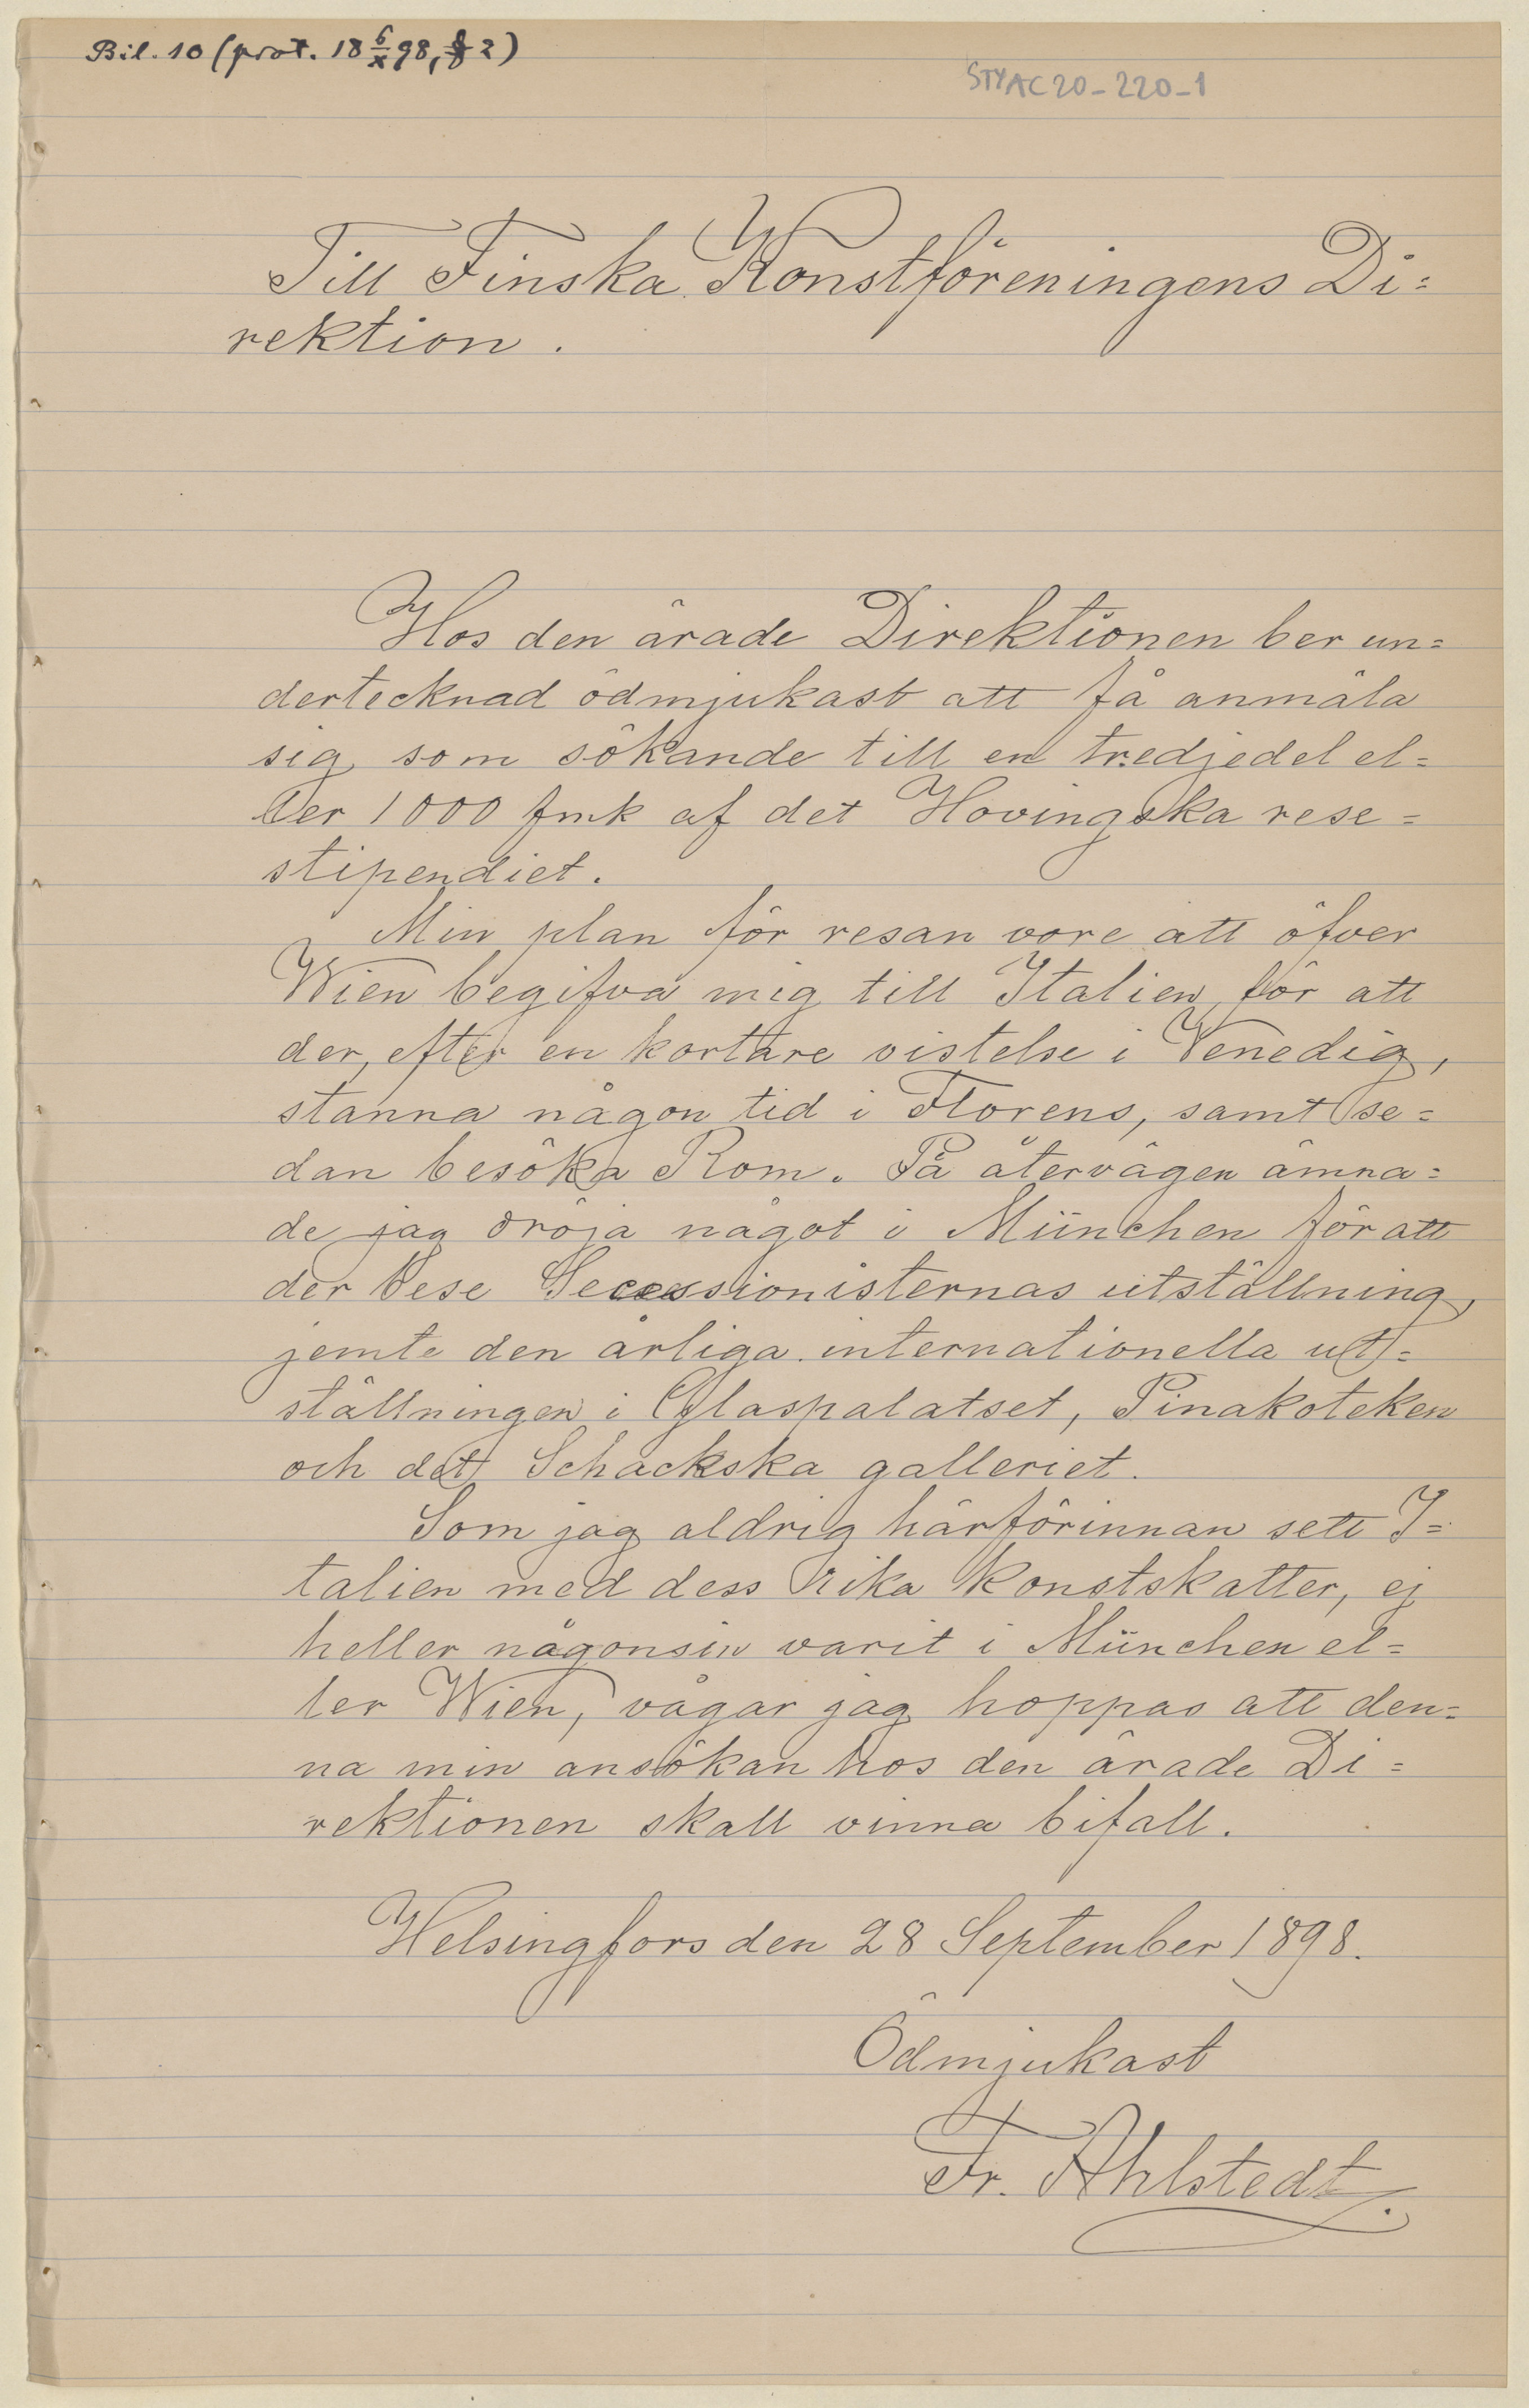 Bil. 10 (prot. 18 6/X 98, § 2)
STY AC 20-220-1
Till Finska Konstföreningens Di=
rektion.
Hos den ärade Direktionen ber un=
dertecknad ödmjukast att få anmäla
sig som sökande till en tredjedel el=
ler 1000 fmk af det Hovingska rese=
stipendiet.
Min plan för resan vore att öfver
Wien begifva mig till Italien för att
der, efter en kortare vistelse i Venedig,
stanna någon tid i Florens, samt se=
dan besöka Rom. På återvägen ämna=
de jag dröja något i München för att
der bese Secessionisternas utställning,
jemte den årliga internationella ut=
ställningen i Glaspalatset, Pinakoteken
och det Schackska galleriet.
Som jag aldrig härförinnan sett I=
talien med dess rika konstskatter, ej
heller någonsin varit i München el=
ler Wien, vågar jag hoppas att den=
na min ansökan hos den ärade Di=
rektionen skall vinna bifall.
Helsingfors den 28 September 1898.
Ödmjukast
Fr. Ahlstedt.